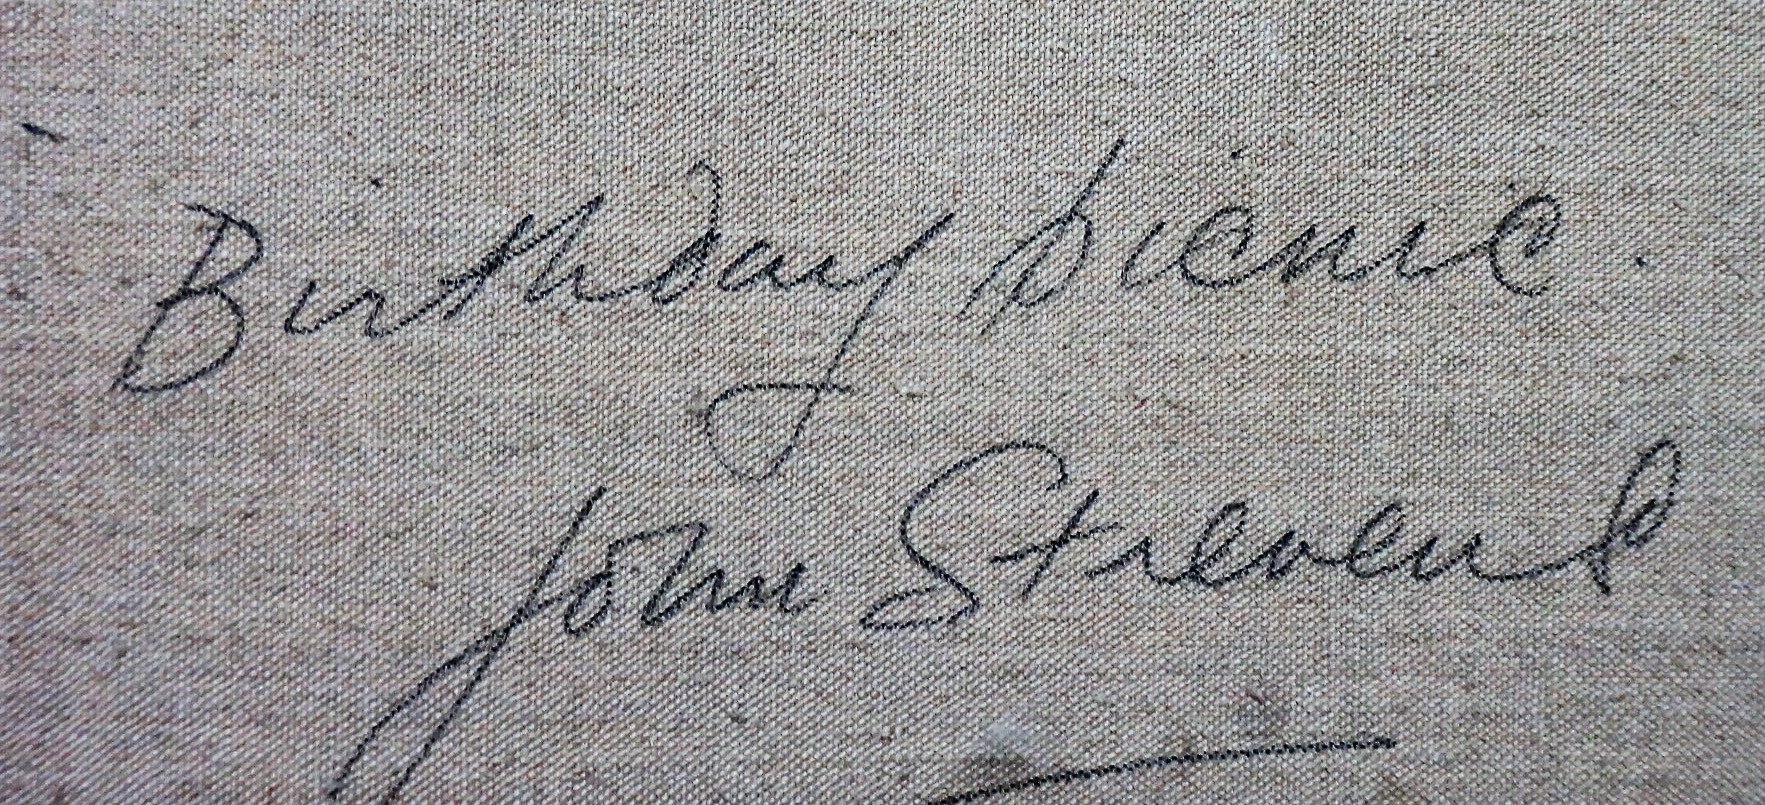 Birthday picnic.
John Stevens